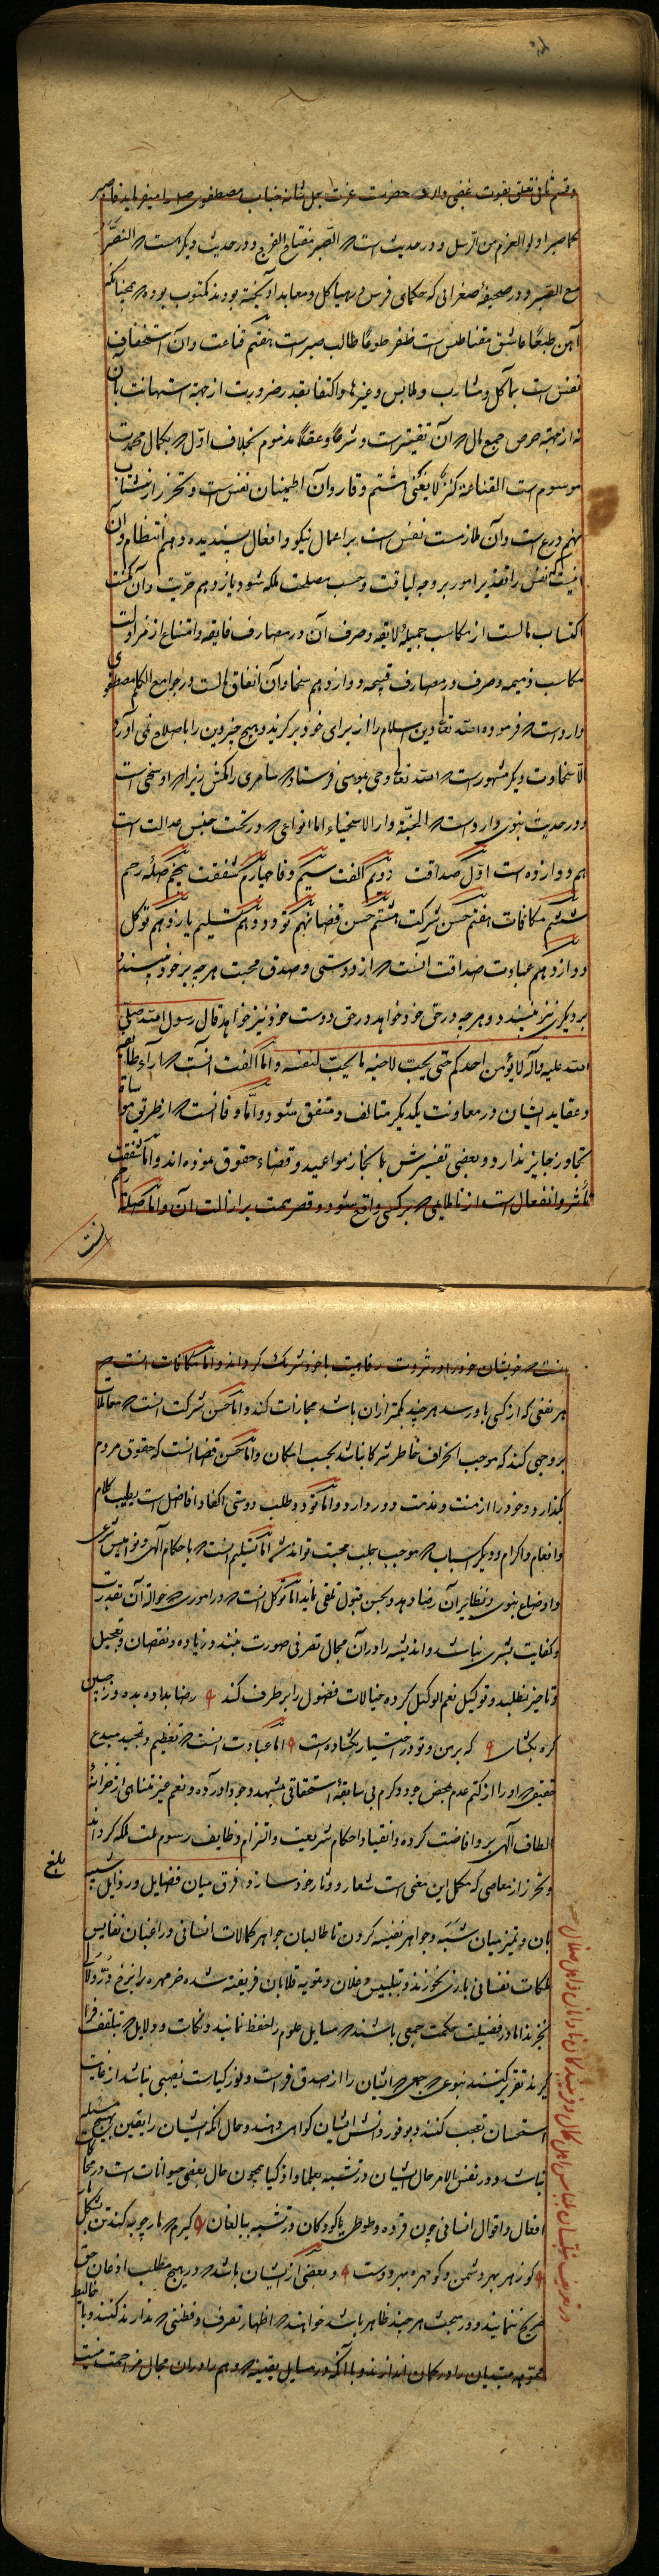 وقسم ثانی تعلق بقوت غضبی دارد حضرت عزت جل شانه جناب مصطفوی صلم را میفرماید فاصبر
کما صبر اولوا العزم من الرسل و در حدیث است که الصبر مفتاح الفرج و در حدیث دیگر است که النصر
مع الصبر و در صحیفهٔ صغرائی که حکمای فرس در هیاکل و معابد آویخته بودند مکتوب بوده که همچنانکه
آهن طبعًا عاشق مقناطیس است ظفر طوعًا طالب صبر است هفتم قناعت وآن استخفاف
نفس است بمآکل و مشارب و ملابس و غیرها و اکتفا بقدر ضرورت از جهت استهانت بآن
نه از جهة حرص جمع مال که آن تقتیر است و شرعًا و عقلًا مذموم بخلاف اول که بکمال محمدت
موسوم است القناعة کنز لا یفنی هشتم وقار وآن اطمینان نفس است و تحرز از شتاب
نهم ورع است وآن ملازمت نفس است بر اعمال نیکو و افعال پسندیده دهم انتظام وآن
آنست که نفس را تقدیر امور بر وجه لیاقت و حسب مصلحت ملکه شود یازدهم حریت وآن تمکنت
اکتساب مالست از مکاسب جمیلهٔ لایقه و صرف آن در مصارف فایقه و امتناع از مزاولت
مکاسب ذمیمه و صرف در مصارف قبیحه دوازدهم سخا وآن انفاق مالست و در جوامع الکلم مصطفوی
وارد است که فرموده الله تعالی دین اسلام را از برای خود برگزید و هیچ چیز دین را باصلاح نمی آورد
الا سخاوت و دیگر مشهور است که الله تعالی وحی بموسی فرستاد که سامری را مکش زیرا که او سخی است
و در حدیث نبوی وارد است که الجنة دار الاسخیاء اما انواعی که در تحت جنس عدالت است
هم دوازده است اول صداقت دویم الفت سیم وفا چهارم شفقت پنجم صلهٔ رحم
ششم مکافات هفتم حسن شرکت هشتم حسن قضا نهم تودد دهم تسلیم یازدهم توکل
دوازدهم عبادت صداقت آنست که از دوستی و صدق محبت هرچه بر خود نپسندد
بر دیگری نیز نپسندد و هرچه در حق خود خواهد در حق دوست خود نیز خواهد قال رسول الله صلی
الله علیه وآله لا یؤمن احدکم حتی یحب لاخیه ما یحب لنفسه و اما الفت آنست که آراء طایفه
و عقاید ایشان در معاونت یکدیگر متالف و متفق شود و اما وفا آنست که از طریق مواساة
تجاوز جایز ندارد و بعضی تفسیرش بانجاز مواعید و قضاء حقوق نموده اند و اما شفقت
تأثر و انفعال است از ناملایمی که بر کسی واقع شود و قصر همت بر ازالت آن و اما صلهٔ رحم
آنست
آنست که خویشان خود را در ثروت و رفاهیت با خود شریک گرداند و اما مکافات آنست که
هر نفعی که از کسی باو رسد هرچند کمتر از آن باشد مجازات کند و اما حسن شرکت آنست که معاملات
بر وجهی کند که موجب انحراف خاطر شرکا نباشد بحسب امکان و اما حسن قضا آنست که حقوق مردم
بگذارد و خود را از منت و مذمت دور دارد و اما تودد طلب دوستی اکفا و افاضل است بطیب کلام
و انعام و اکرام و دیگر اسباب که موجب جلب محبت تواند شد اما تسلیم آنست که باحکام الهی و نوامیس شرعی
و اوضاع نبوی و نظایر آن رضا دهد و بحسن قبول تلقی نماید اما توکل آنست که در اموری که حوالهٔ آن بقدرت
و کفایت بشری نباشد و اندیشه را در آن مجال تصرفی صورت نبندد زیاده و نقصان و تعجیل
و تاخیر نطلبد و توکیل نعم الوکیل کرده خیالات فضول را برطرف کند رضا بداده بده وز جبین
گره بگشای که بر من و تو در اختیار نگشاده است اما عبادت آنست که تعظیم و تمجید مبدع
حقیقی که او را از کتم عدم بمحض جود و کرم بی سابقهٔ استحقاقی بمشهد وجود آورده و نعم غیر متناهی از خزانهٔ
الطاف الهی بر وی افاضت کرده و انقیاد احکام شریعت و التزام وظایف رسوم ملت ملکه گرداند
و تحرز از معاصی که مکمل این معنی است شعار و دثار خود سازد و فرق میان فضایل و رذایل شبیه
بان و تمیز میان شبه و جواهر نفیسه کردن تا طالبان جواهر کمالات انسانی و راغبان نفایس
ملکات نفسانی بازی نخورند و بتلبیس دجلان و تمویه قلابان فریفته شده خرمهره را بنرخ در و لآلی
نخرند اما در فضیلت حکمت جمعی باشند که مسایل علوم را حفظ نمایند و نکات و دلایل که بتلقف فرا
گیرند تقریر کنند بنوعی که جمعی که ایشان را از صدق فراست و نور کیاست نصیبی نباشد از غایت
استحسان تعجب کنند و بوفور دانش ایشان گواهی دهند و حال آنکه ایشان را یقین بهیچ مسئله
نباشد و در نفس الامر حال ایشان در تشبه بعلما و اذکیا همچون حال بعضی حیوانات است در محاکات
افعال و اقوال انسانی چون قرده و طوطی یا کودکان در تشبه ببالغان گیرم که مارچوبه کند تن بشکل مار
کو زهر بهر دشمن و کو مهره بهر دوست و بعضی از ایشان باشند که در هیچ مطلب اذعان حق
صریح ننمایند و در هر بحث هرچند ظاهر باشد خواهند که اظهار تصرف و فطنتی که ندارند کنند و با مغالیط
مموهه مبتدیان را در گمان اندازند و با آنکه در مسایل یقینیه که وهم را در آن مجال مزاحمت نیست
بلغ